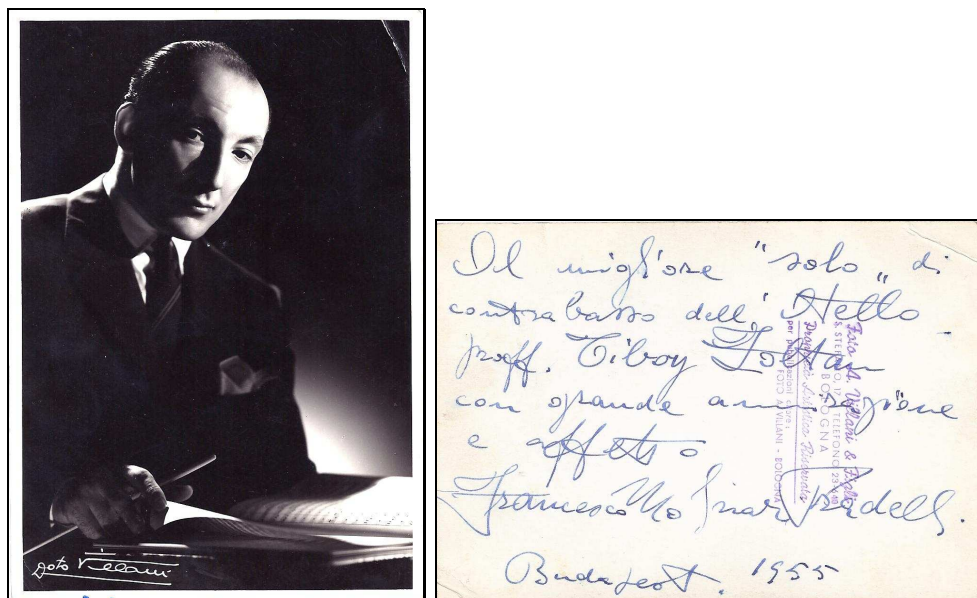 Foto Villani
Il migliore "solo" di
contrabasso dell'Otello
proff. Tiboy Zoltan
con grande ammirazione
e affetto
Francesco Molinari Pradelli.
Budapest. 1955
Foto A. Villani & Figli
BOLOGNA
Proprietà Artistica Riservata
FOTO A. VILLANI - BOLOGNA